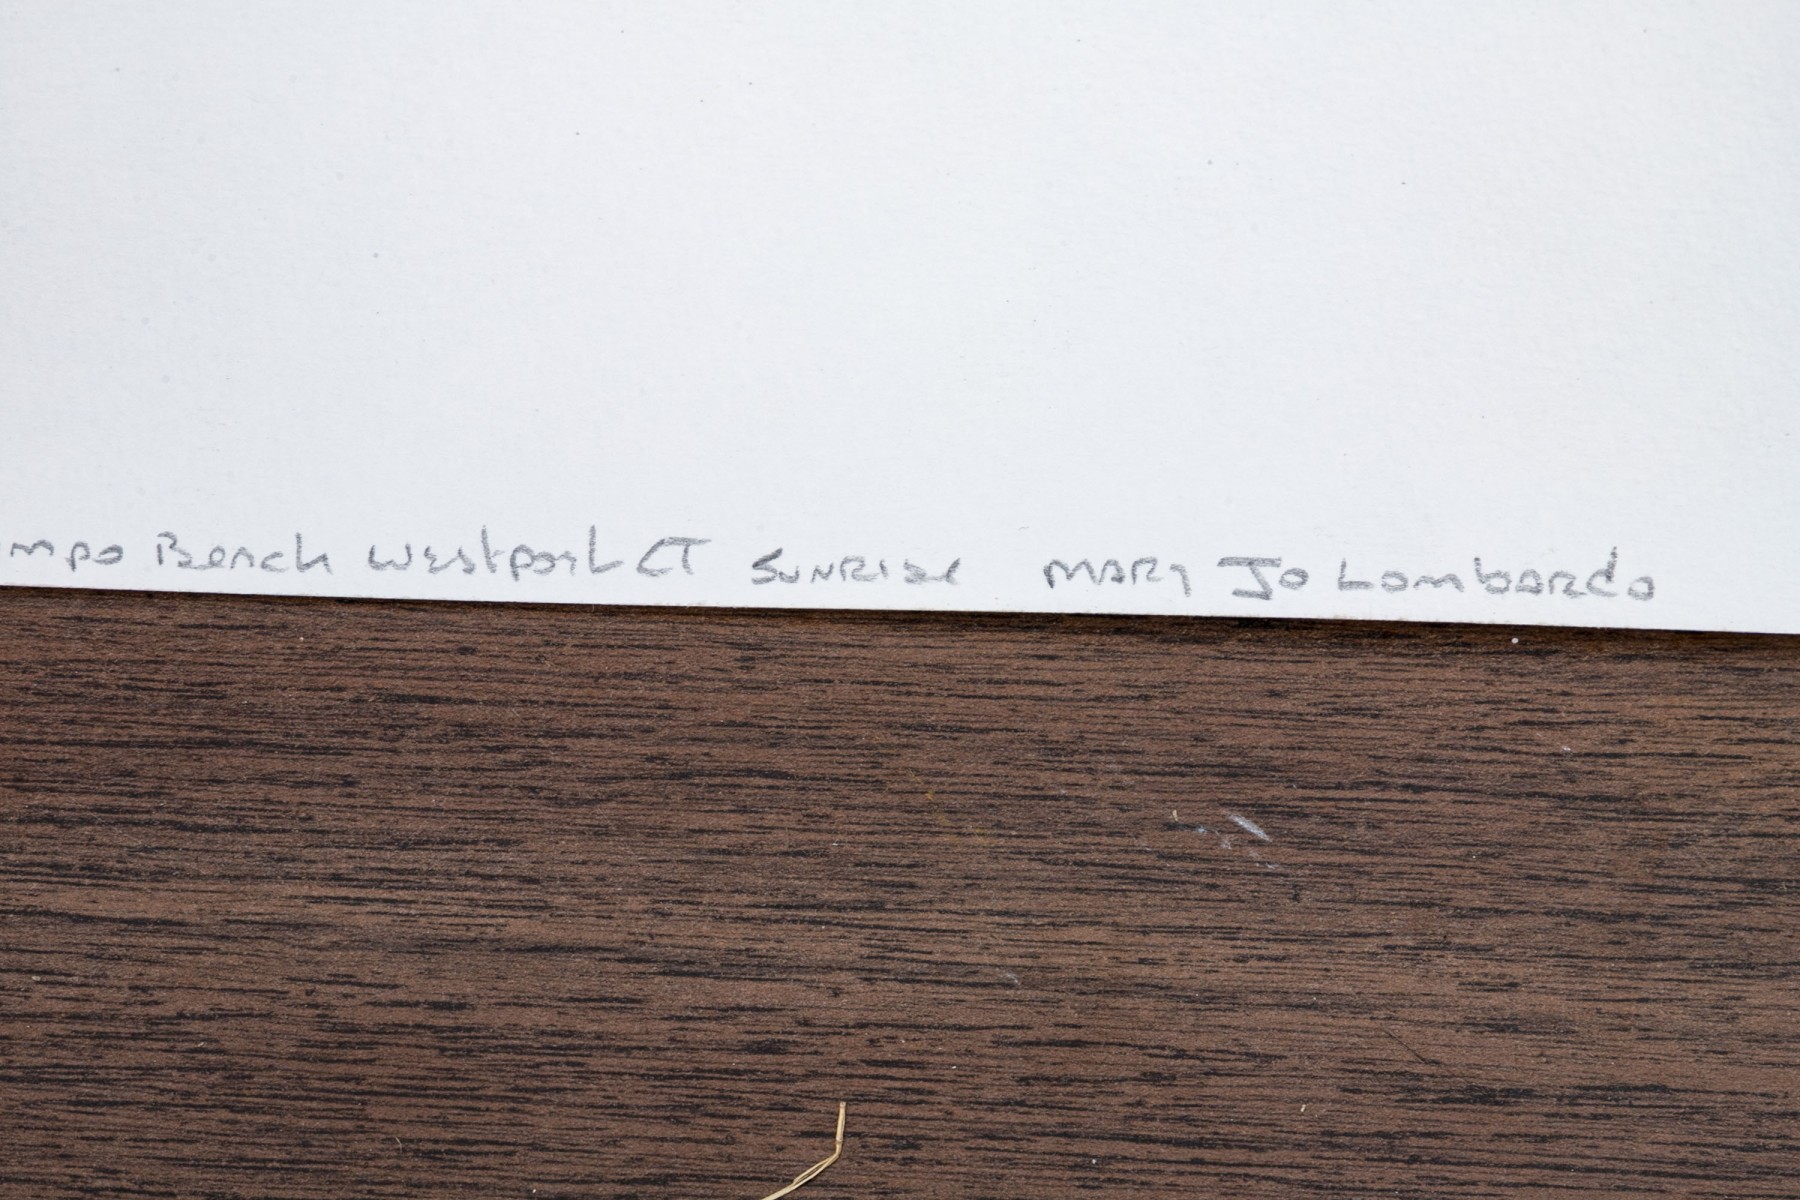 ompo Beach Westport CT SUNRISE MARY Jo Lombardo